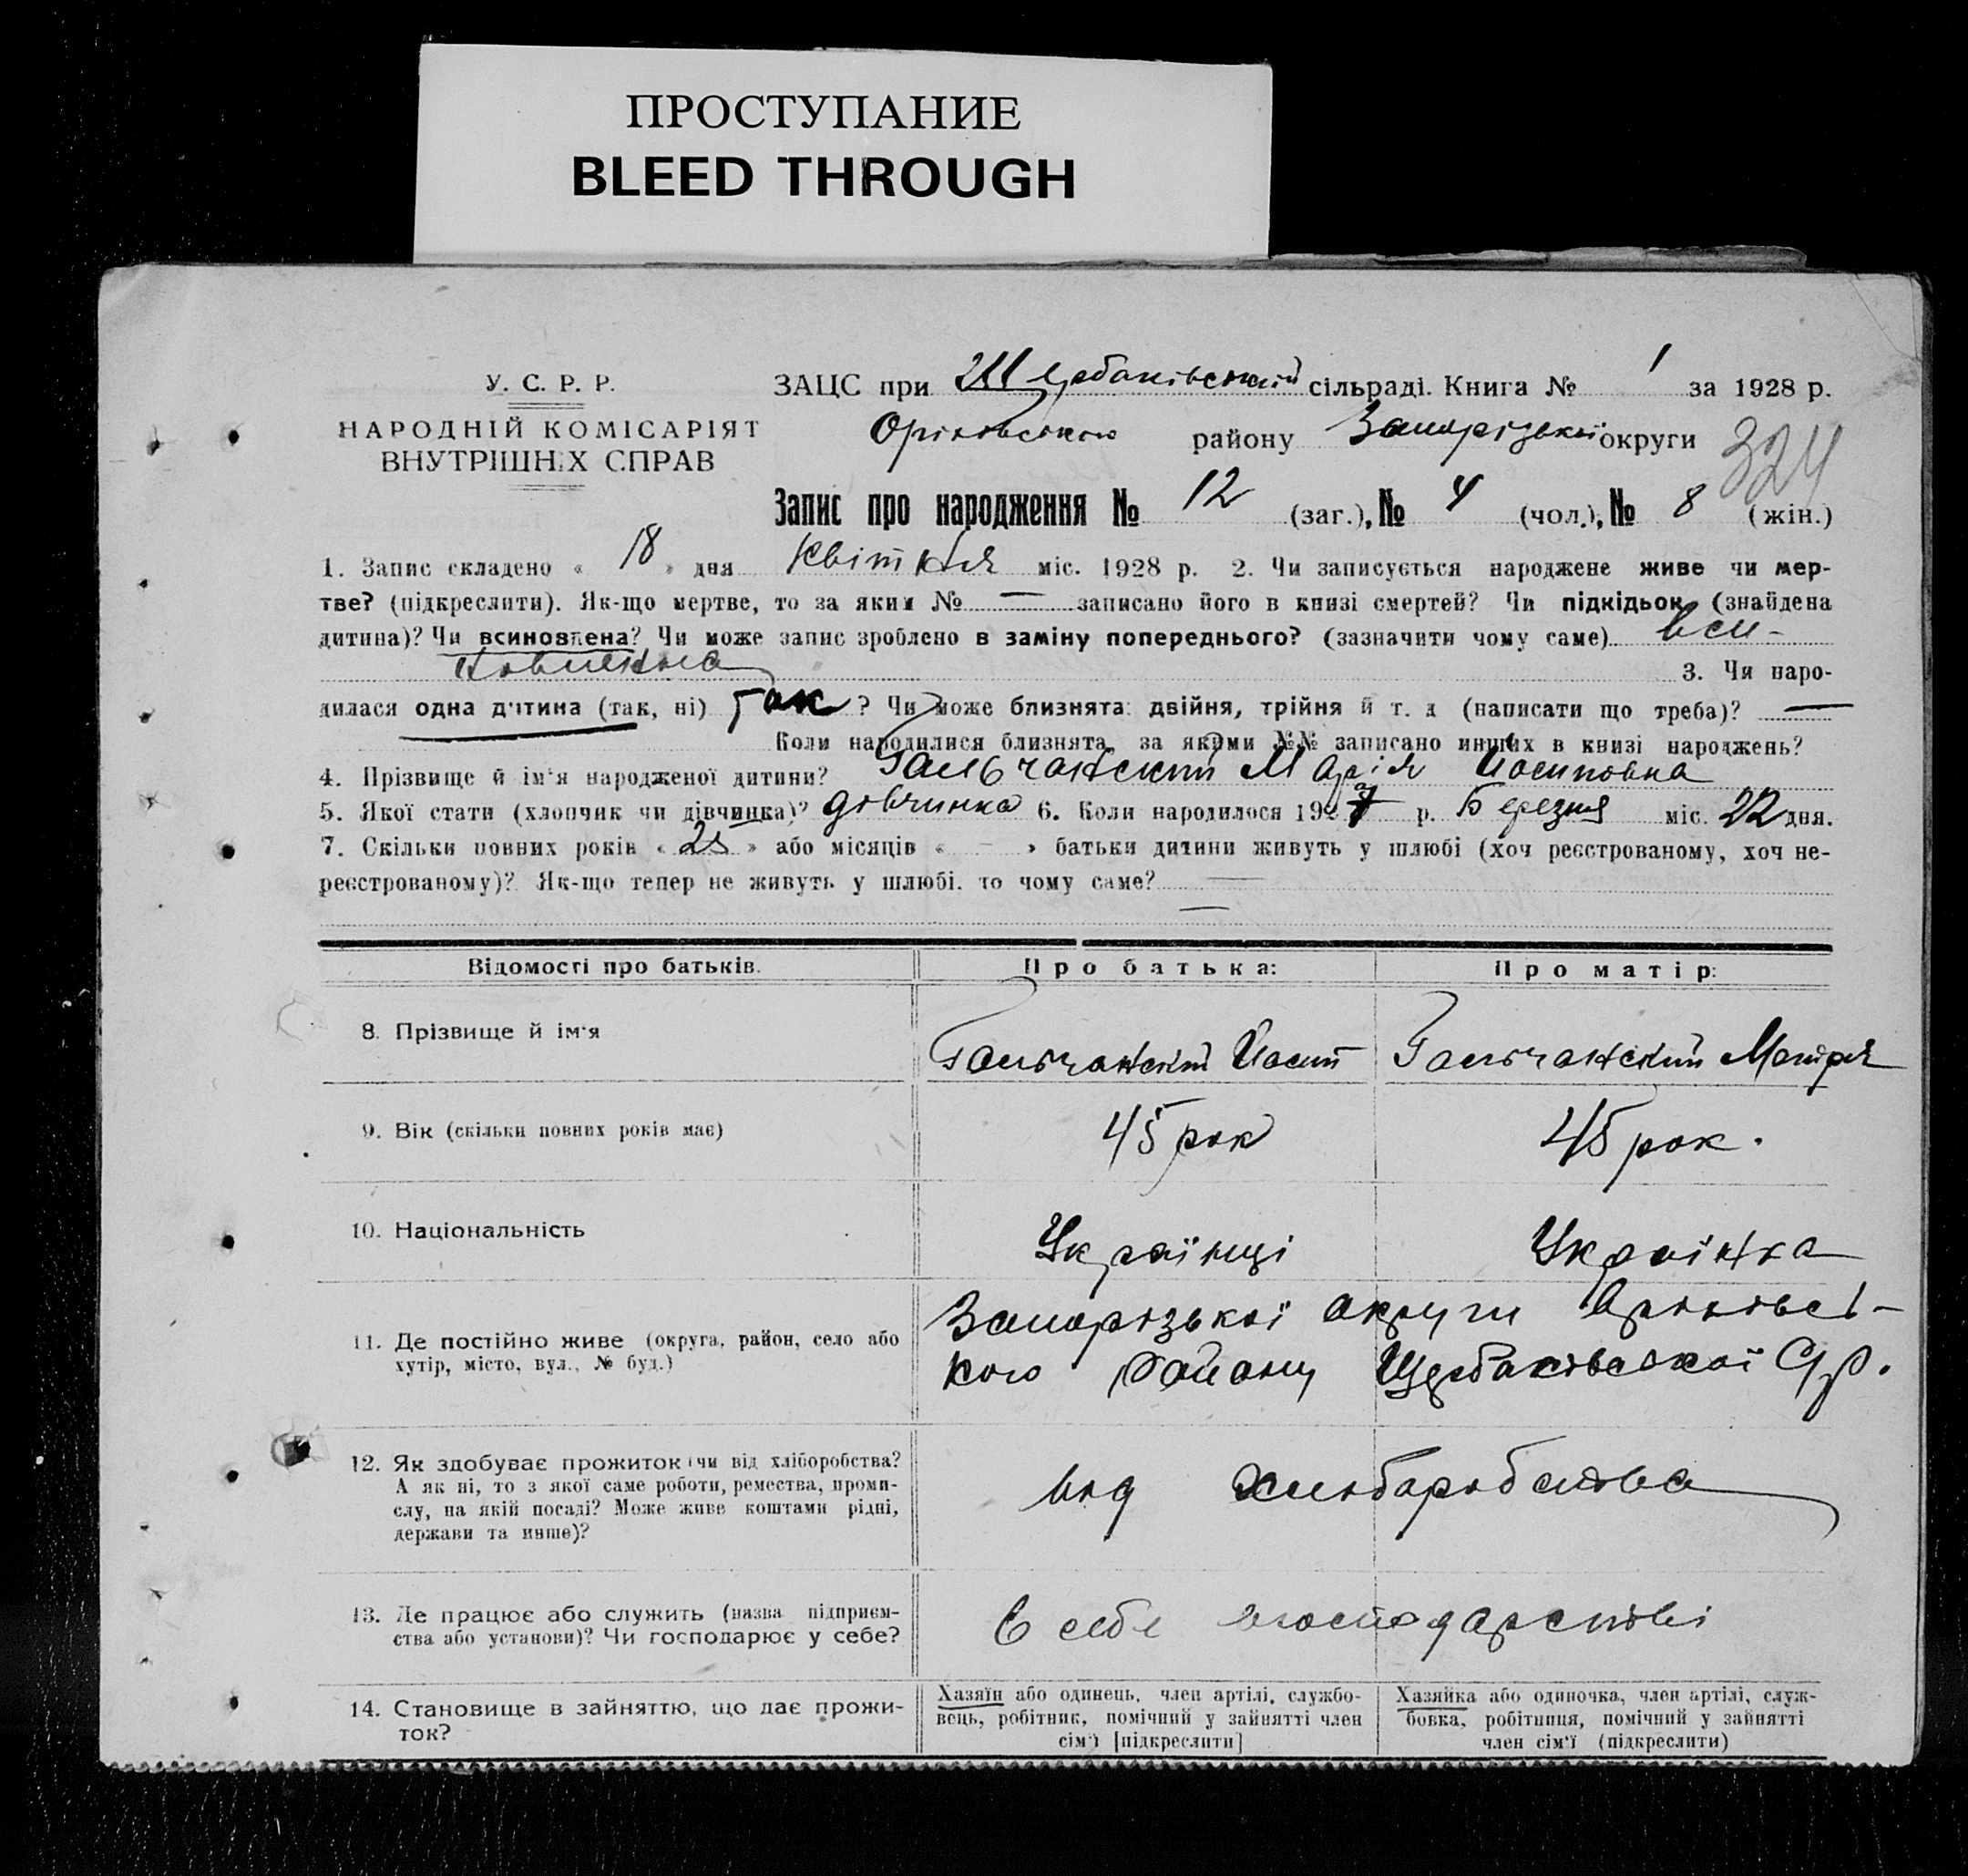 ПРОСТУПАНИЕ
BLEED THROUGH
У. С. Р. Р.
НАРОДНІЙ КОМІСАРІЯТ
ВНУТРІШНІХ СПРАВ
ЗАЦС при Щербаківській сільраді. Книга № 1 за 1928 р.
Оріхівського району Запорізької округи
324
Запис про народження № 12 (заг.), № 4 (чол.), № 8 (жін.)
1. Запис складено « 18 » дня Квітня міс. 1928 р. 2. Чи записується народжене живе чи мер-
тве? (підкреслити). Як-що мертве, то за яким № — записано його в книзі смертей? Чи підкідьок (знайдена
дитина)? Чи всиновлена? Чи може запис зроблено в заміну попереднього? (зазначити чому саме) вси-
новлена 3. Чи наро-
дилася одна дитина (так, ні) Так ? Чи може близнята: двійня, трійня й т. д (написати що треба)? —
Коли народилися близнята, за якими №№ записано инших в книзі народжень?
4. Прізвище й ім'я народженої дитини? Гальчанский Марія Йосиповна
5. Якої стати (хлопчик чи дівчинка)? дівчинка 6. Коли народилося 1927 р. Березня міс. 22 дня.
7. Скільки повних років « 25 » або місяців « — » батьки дитини живуть у шлюбі (хоч реєстрованому, хоч не-
реєстрованому)? Як-що тепер не живуть у шлюбі. то чому саме? —
—
Відомості про батьків. Про батька: Про матір:
8. Прізвище й ім'я Гальчанский Йосип Гальчанский Мотря
9. Вік (скільки повних років має) 45 рок 45 рок.
10. Національність Українці Українка
11. Де постійно живе (округа, район, село або
хутір, місто, вул., № буд.)
Запорізької округи Оріхівсь-
кого Району Щербаківської С/р.
12. Як здобуває прожиток (чи від хліборобства?
А як ні, то з якої саме роботи, ремества, проми-
слу, на якій посаді? Може живе коштами рідні,
держави та инше)?
від хліборобства
13. Де працює або служить (назва підприєм-
ства або установи)? Чи господарює у себе?
В себе господарстві
14. Становище в зайняттю, що дає прожи-
ток?
Хазяїн або одинець, член артілі, службо-
вець, робітник, помічний у зайнятті член
сім'ї [підкреслити]
Хазяйка або одиночка, член артілі, служ-
бовка, робітниця, помічний у зайнятті
член сім'ї (підкреслити)